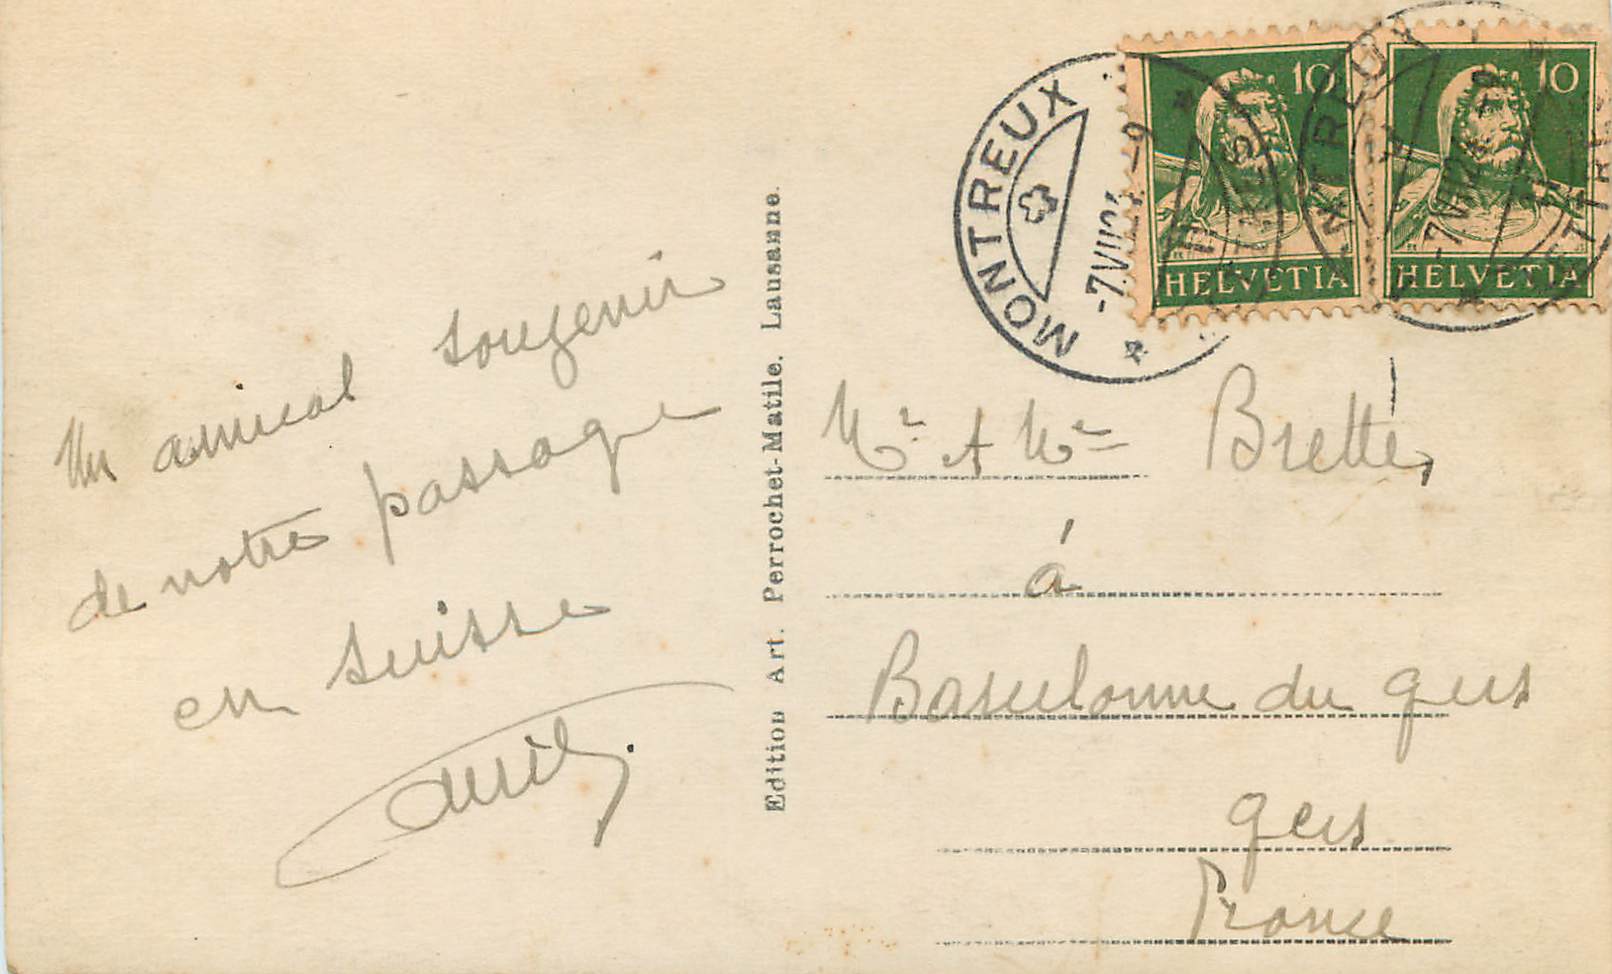 Un amical souvenir
de notre passage
en Suisse
Edition Art. Perrochet-Matile. Lausanne.
MONTREUX
-7.VII.24.-9
10
HELVETIA
10
HELVETIA
Mr & Mme Brette,
à
Barcelonne du Gers
Gers
France